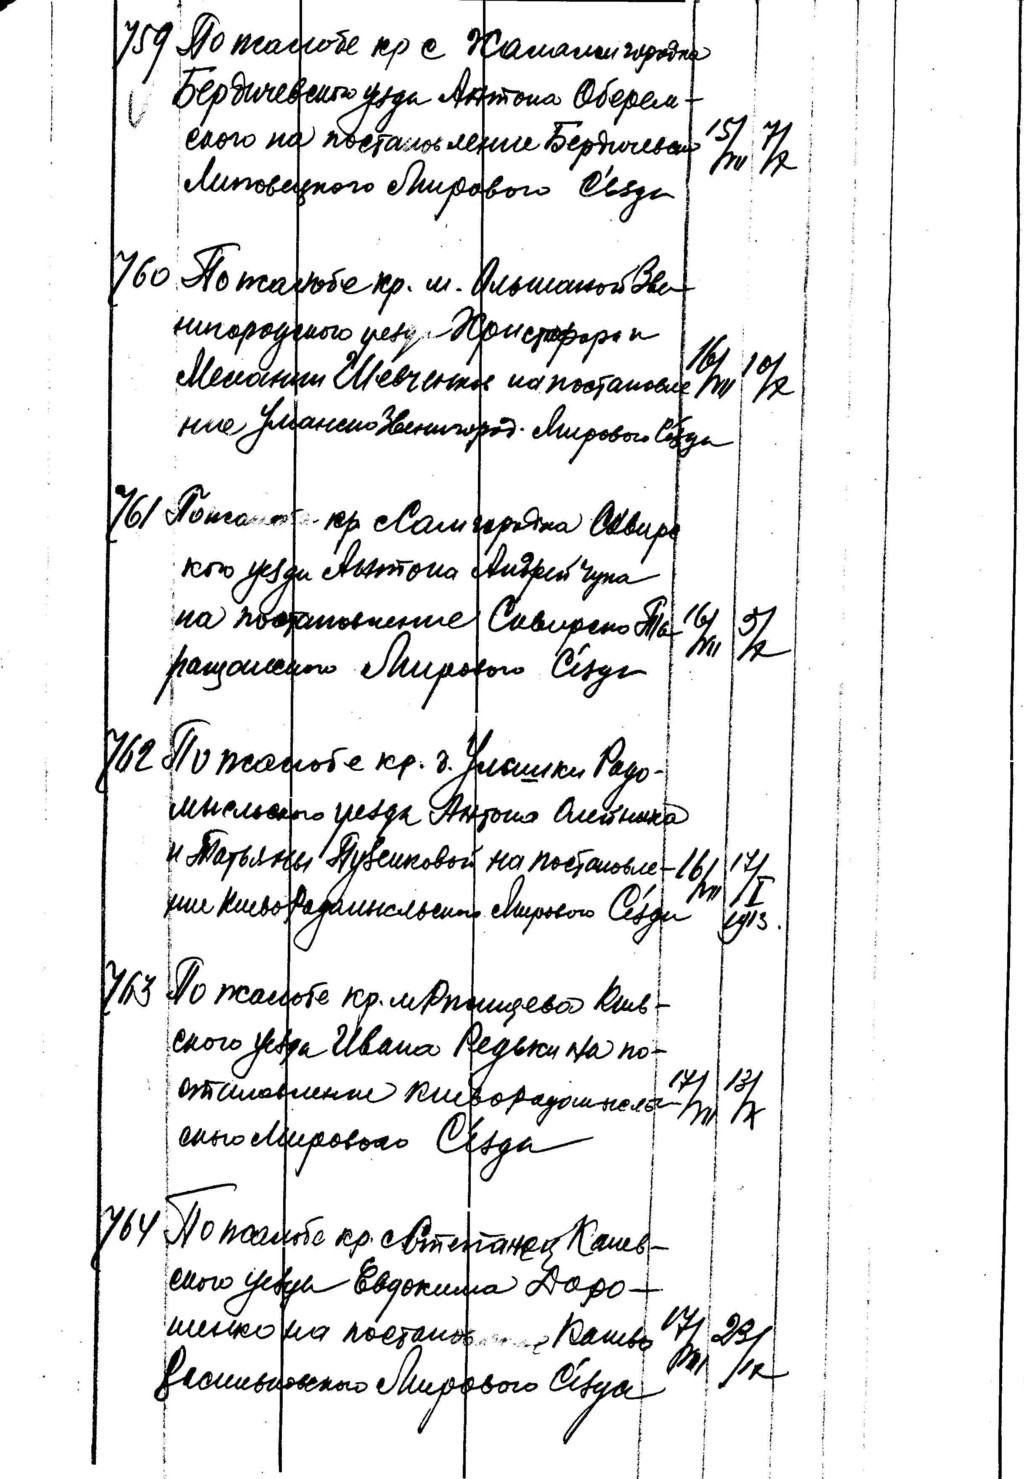 759 По жалобе кр с Жамамигородка
Бердичевского уезда Антона Оберем-
ского на постановление Бердичевско 15/VII 7/X
Липовецкого Мирового Съезда
760 По жалобе кр. м. Ольшаной Зве-
нигородского уезда Христофора и
Мелании Шевченков на постановле 16/VII 10/X
ние Уманско Звенигород. Мирового Съезда
761 По жалобе кр с Самгородка Сквирс
кого уезда Антона Андрейчука
на постановление Сквирско Та- 16/VII 5/X
ращанского Мирового Съезда
762 По жалобе кр. д. Ульшки Радо-
мысльского уезда Антона Олейника
и Татьяны Пузенковой на постановле- 16/VII 17/I
ние Киево Радомысльского Мирового Съезда 1913.
763 По жалобе кр. м Ржищева Киев-
ского уезда Ивана Редьки на по-
становление Киеворадомысль- 17/VII 13/X
ского Мирового Съезда
764 По жалобе кр. с Степанец Канев-
ского уезда Евдокима Доро-
шенко на постановление Канево 17/VII 23/IX
Васильковского Мирового Съезда